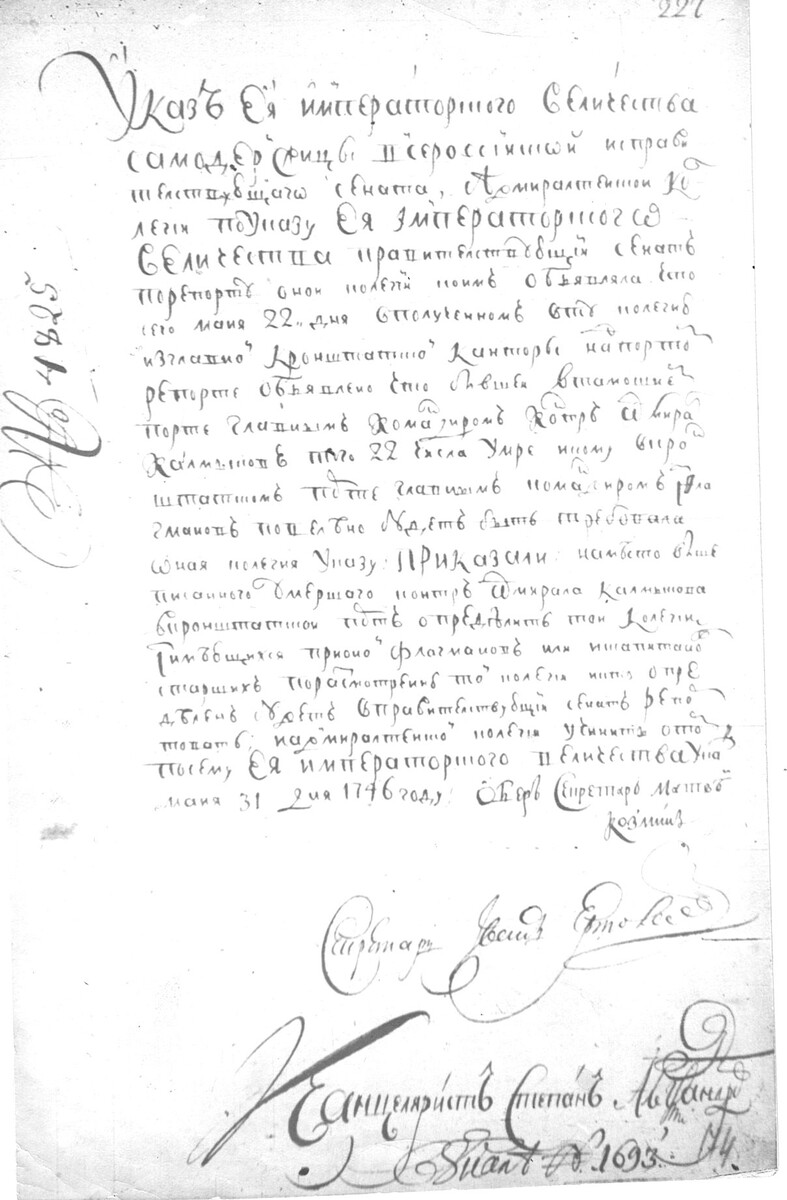 227
Указъ Ея Императорского Величества
самодержицы Всероссійской исправи
телствующаго сената, Адмиралтенской ко
легіи по Указу Ея Императорского
Величества правителствующій сенатъ
по репорту оной колегіи коимъ объявляла что
сего маия 22 дня в полученномъ в ту колегию
из главной Кронштатской канторы над портомъ
репорте объявлено что бывшей в тамошнемъ
порте главнымъ командиромъ контръ адмиралъ
Калмыковъ того 22 числа умре и кому в крон
штатскомъ порте главнымъ командиромъ из фла
гмановъ повелѣно будетъ быть требовала
оная колегия Указу: приказали: на мѣсто выше
писанного умершаго контръ адмирала Калмыкова
в кронштатской портъ определить той колегии
из имѣющихся при оной флагмановъ или ис капитановъ
старшихъ по разсмотрению той колегии и кто опре
дѣленъ будетъ в правителствующій сенатъ репор
товать; и адмиралтенской колегии учинить о том
по сему Ея императорского величества Указу
маия 31 дня 1746 году: Оберъ Секретарь Матвѣй
Козминъ
№ 4825
Секретарь Иванъ
Канцеляристъ Степанъ
№ 1693